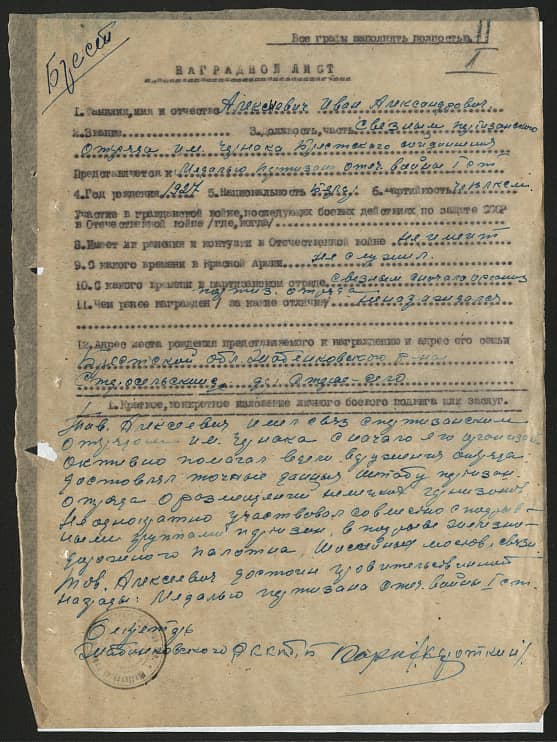 Брест
Все графы заполнять полностью.
НАГРАДНОЙ ЛИСТ
1. Фамилия, имя и отчество Алексеевич Иван Александрович
2. Звание 3. Должность, часть Связным партизанского
отряда им. Чернака Брестского соединения
Представляется к Медалью партизан отеч. войны I ст.
4. Год рождения 1927 5. Национальность 6. Партийность
Участие в гражданской войне, последующих боевых действиях по защите СССР
в Отечественной войне /где, когда/
8. Имеет ли ранения и контузии в Отечественной войне не имеет
9. С какого времени в Красной Армии не служил
10. С какого времени в партизанском отряде связным сначала организ
партиз. отряда
11. Чем ранее награжден / за какие отличия/ не награждался
12. Адрес места рождения представляемого к награждению и адрес его семьи
Брестской обл. Жабинковского р-на
Старосельский д. Старое-Село
1. Краткое, конкретное изложение личного боевого подвига или заслуг.
Тов. Алексеевич имел связь с партизанским
отрядом им. Чернака с начала его организа
Активно помогал отряда
доставлял точные данные штабу партизан.
отряда о размещении немецких гарнизонов
Неоднократно участвовал совместно с подрыв-
ными группами партизан, в подрыве железно-
дорожного полотна, шоссейных мостов, связи
Тов. Алексеевич достоин правительственной
награды: Медалью партизана отеч. войны I ст.
Секретарь
Жабинковского РК КП/б/Б /Короткий/